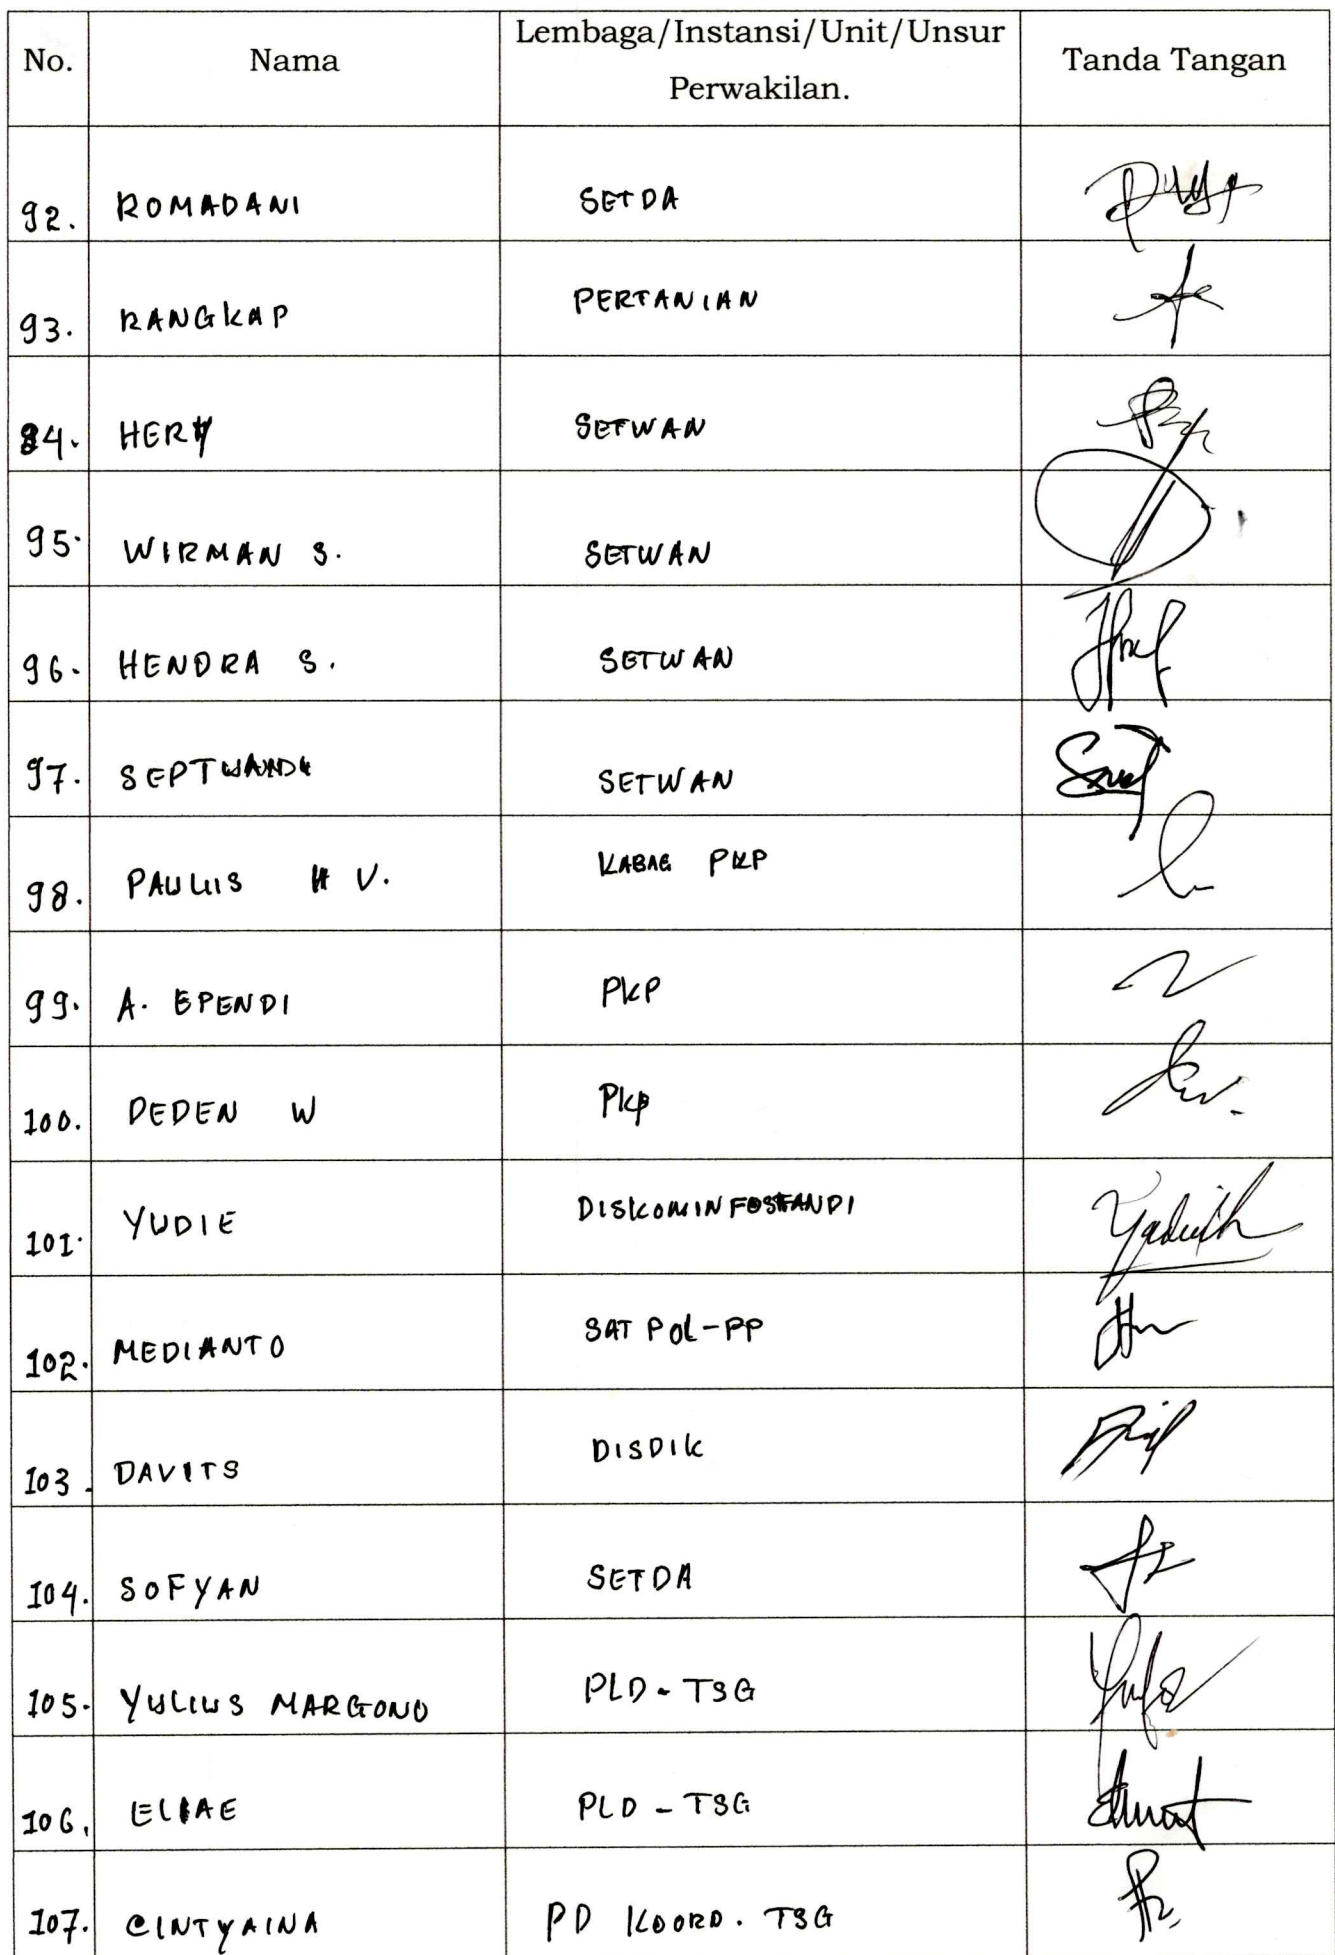 No. Nama Lembaga/Instansi/Unit/Unsur Perwakilan. Tanda Tangan
92. ROMADANI SETDA
93. RANGKAP PERTANIAN
94. HERY SETWAN
95. WIRMAN S. SETWAN
96. HENDRA S. SETWAN
97. SETWAN
98. PAULUS H V. KABAG PKP
99. A. EPENDI PKP
100. DEDEN W PKP
101. YUDIE DISKOMINFOSTANDI
102. MEDIANTO SAT POL-PP
103. DAVITS DISDIK
104. SOFYAN SETDA
105. YULIUS MARGONO PLD-TSG
106. ELIAE PLD-TSG
107. CINTYAINA PD KOORD. TSG